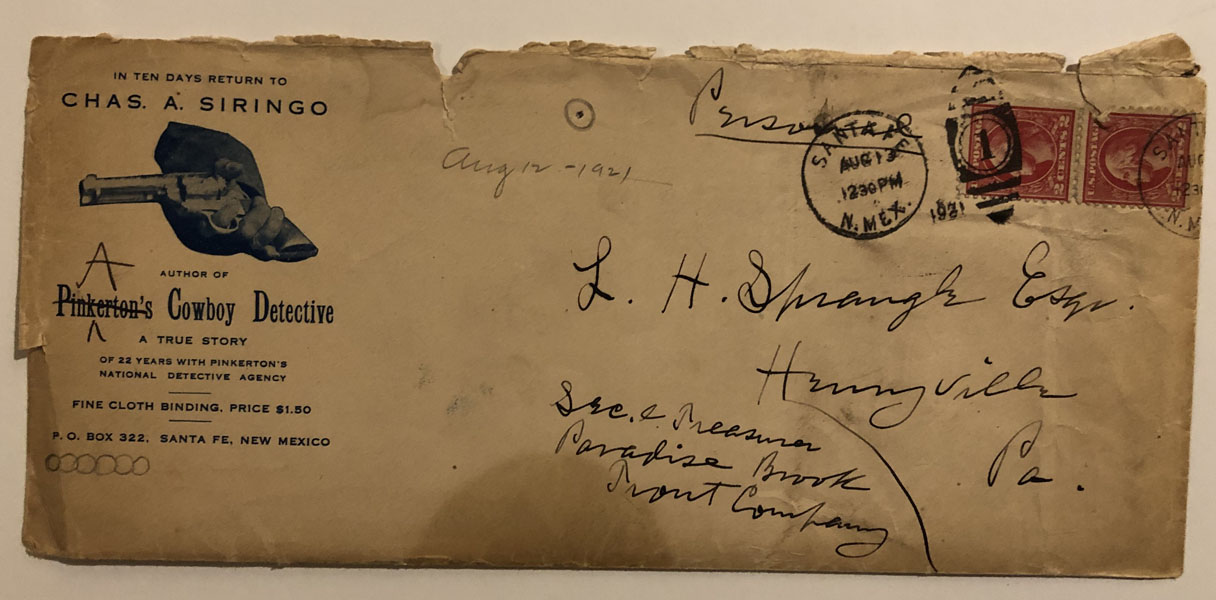 IN TEN DAYS RETURN TO
CHAS. A. SIRINGO
AUTHOR OF
A
Pinkerton's Cowboy Detective
A TRUE STORY
OF 22 YEARS WITH PINKERTON'S
NATIONAL DETECTIVE AGENCY
FINE CLOTH BINDING, PRICE $1.50
P. O. BOX 322, SANTA FE, NEW MEXICO
Aug 12 - 1921
Personal
SANTA FE
AUG 13
1230 PM
N. MEX.
1921
1
U.S. POSTAGE
2 CENTS 2
U.S. POSTAGE
SANTA
AUG
1230
N. M
L. H. Sprangle Esqr.
Hennyville
Pa.
Sec. & Treasurer
Paradise Brook
Trout Company